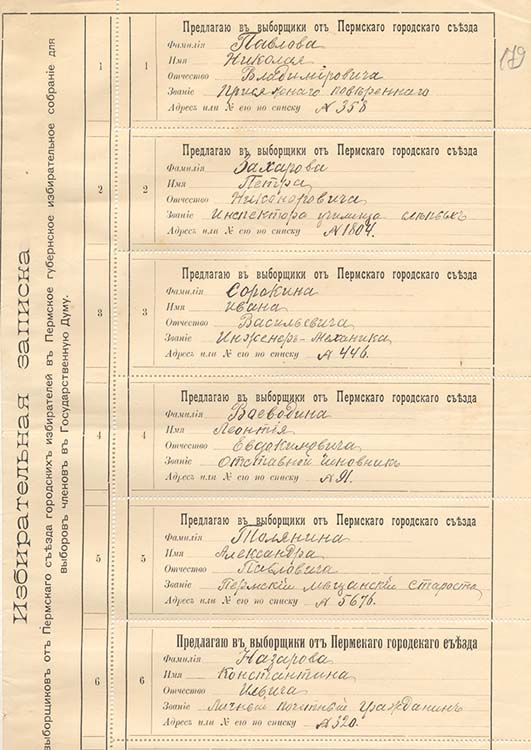 Избирательная записка
выборщиковъ отъ Пермскаго съѣзда городскихъ избирателей въ Пермское губернское избирательное собраніе для
выборовъ членовъ въ Государственную Думу.
179
1
1
Предлагаю въ выборщики отъ Пермскаго городскаго съѣзда
Фамилія Павлова
Имя Николая
Отчество Владиміровича
Званіе Присяжнаго повѣреннаго
Адресъ или № его по списку № 358
2
2
Предлагаю въ выборщики отъ Пермскаго городскаго съѣзда
Фамилія Захарова
Имя Петра
Отчество Никаноровича
Званіе Инспектора училища слѣпыхъ
Адресъ или № его по списку № 1804.
3
3
Предлагаю въ выборщики отъ Пермскаго городскаго съѣзда
Фамилія Сорокина
Имя Ивана
Отчество Васильевича
Званіе Инженеръ-Механика
Адресъ или № его по списку № 446.
4
4
Предлагаю въ выборщики отъ Пермскаго городскаго съѣзда
Фамилія Ваеводина
Имя Леонтія
Отчество Евдокимовича
Званіе Отставной чиновникъ
Адресъ или № его по списку № 91.
5
5
Предлагаю въ выборщики отъ Пермскаго городскаго съѣзда
Фамилія
Имя Александра
Отчество Павловича
Званіе Пермскій мѣщанскій Староста
Адресъ или № его по списку № 5676.
6
6
Предлагаю въ выборщики отъ Пермскаго городскаго съѣзда
Фамилія Назарова
Имя Константина
Отчество Ильича
Званіе Личный почетный гражданинъ
Адресъ или № его по списку № 320.